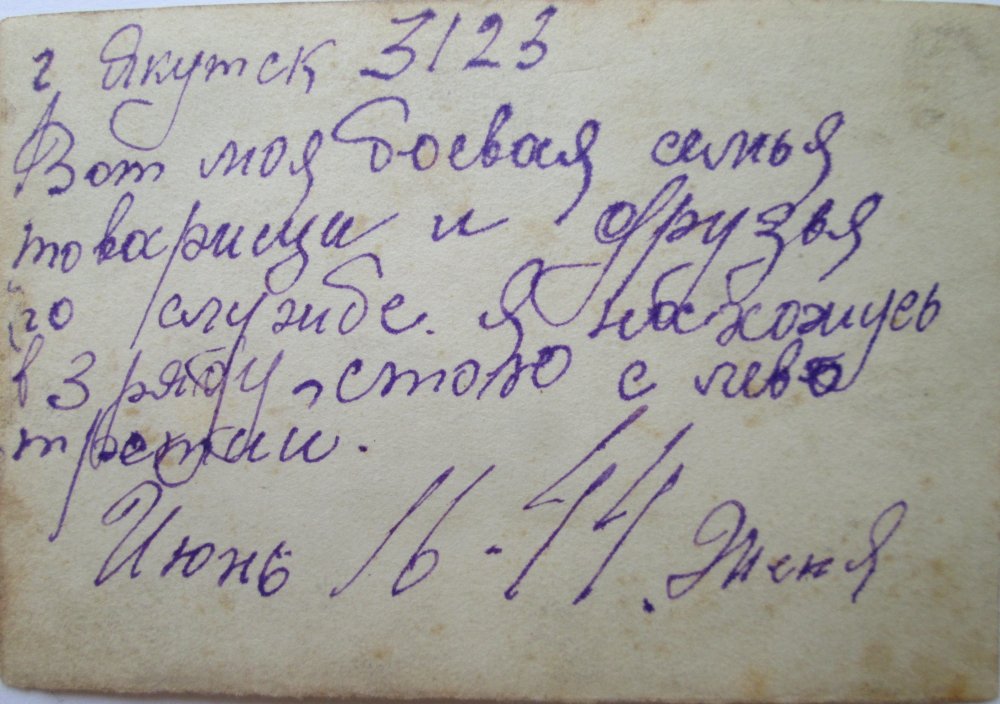 г Якутск 3123
Вот моя боевая семья
товарищи и друзья
по службе. Я нахожусь
в 3 ряду, стою с лево
третий.
Июнь 16-44. Женя